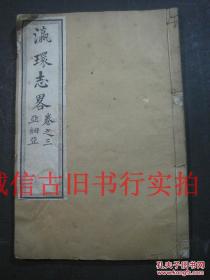 瀛環志畧
卷之三
亞細亞
诚信古旧书行实拍